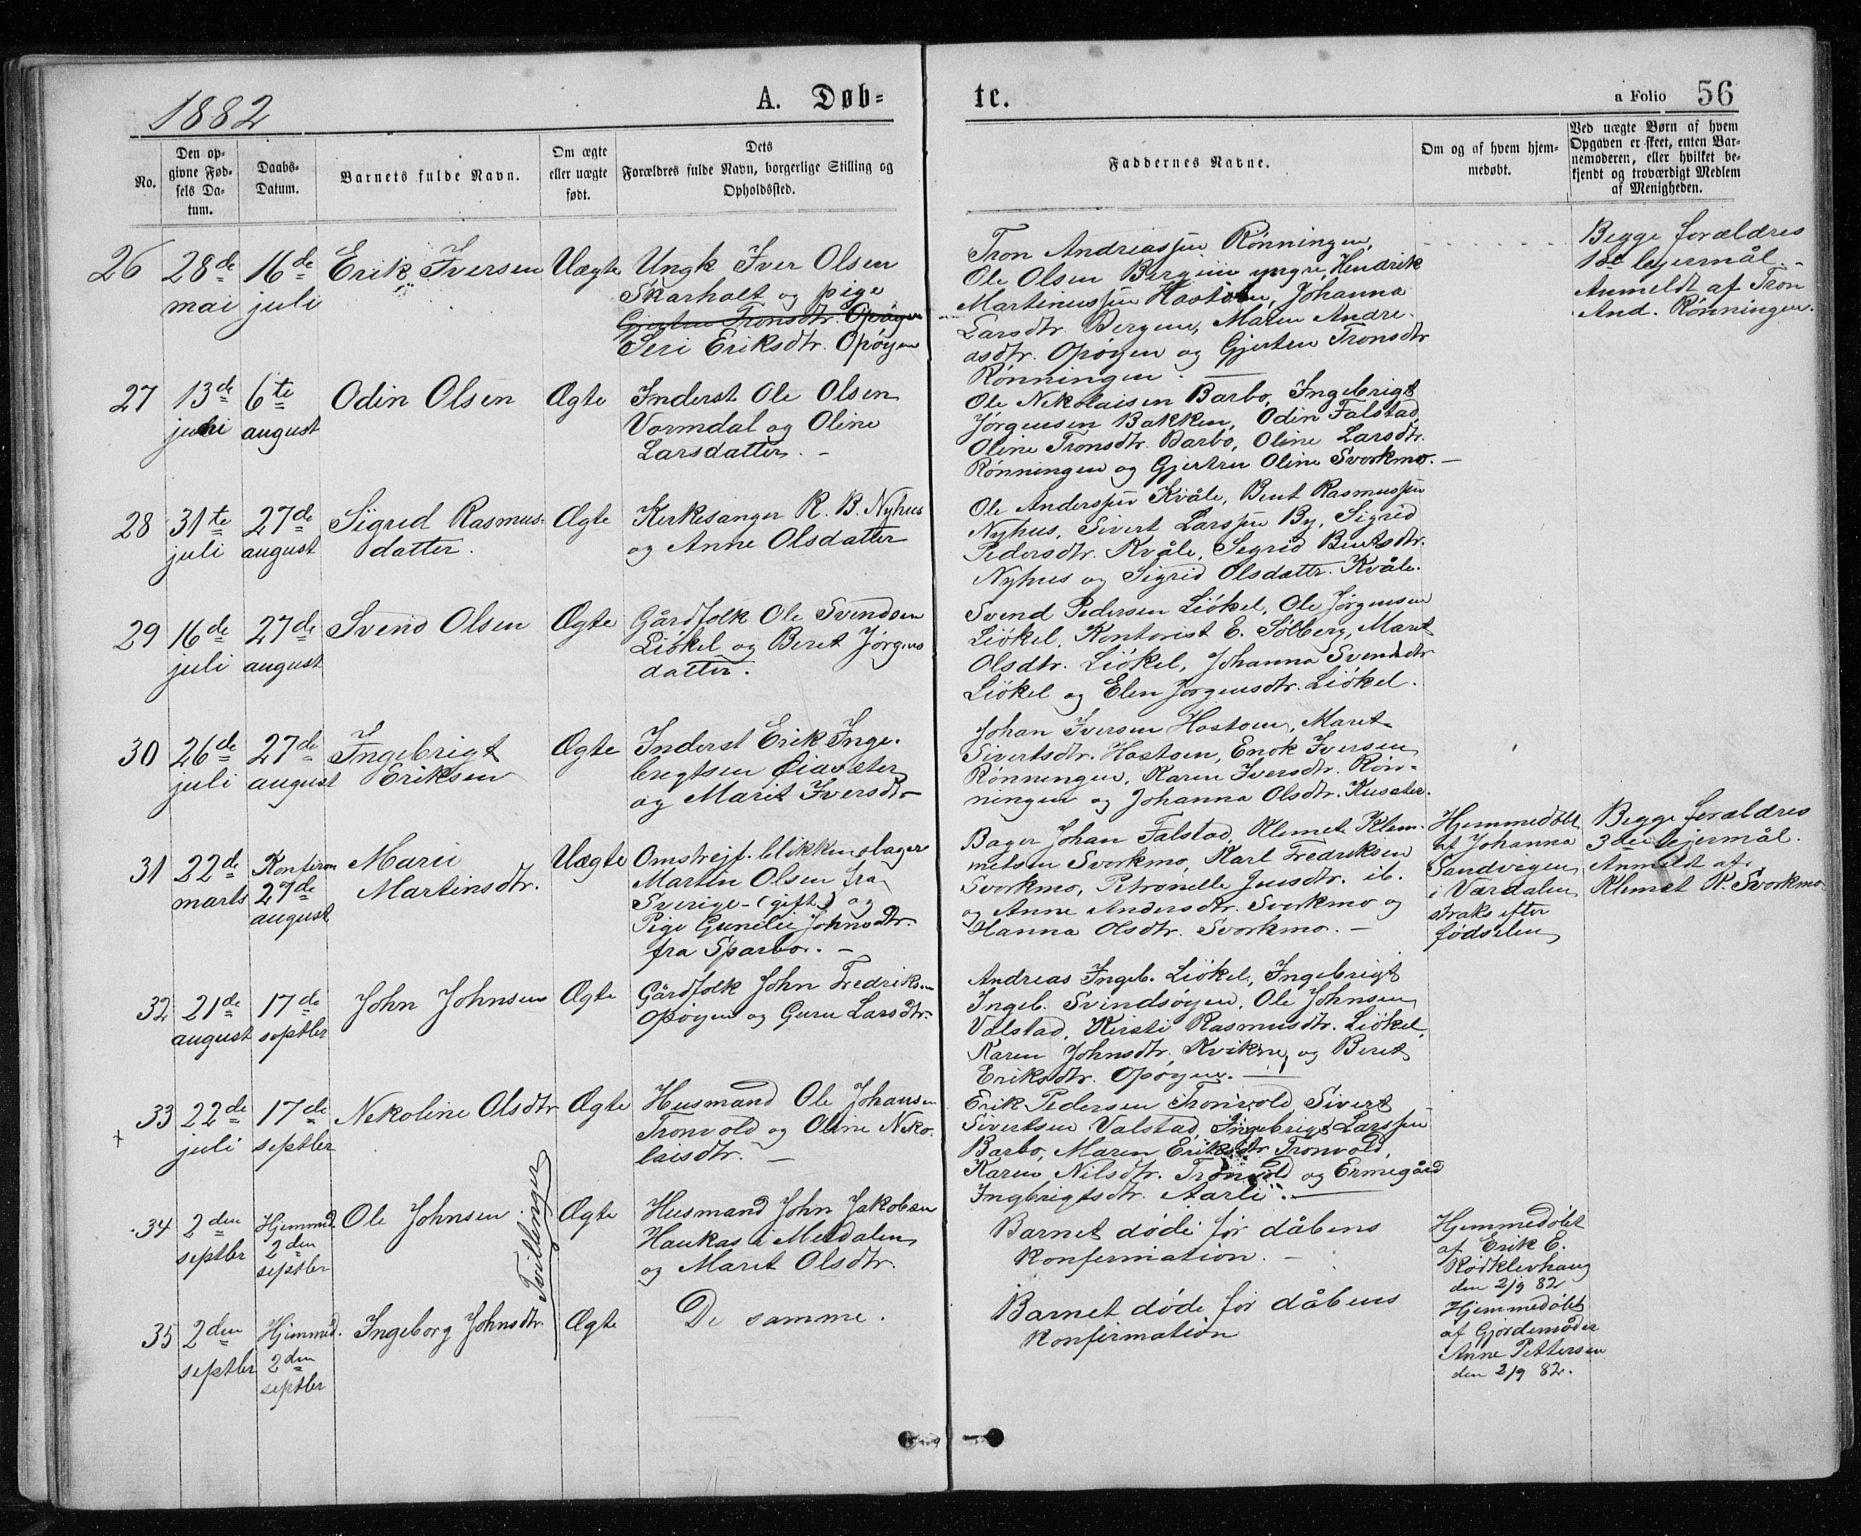 1882
A. Døb-
te.
a Folio 56
No.
Den op-
givne Fød-
sels Da-
tum.
Daabs-
Datum.
Barnets fulde Navn.
Om ægte
eller uægte
født.
Dets
Forældres fulde Navn, borgerlige Stilling og
Opholdssted.
Faddernes Navne.
Om og af hvem hjem-
medøbt.
Ved uægte Børn af hvem
Opgaven er skeet, enten Bar-
nemoderen, eller hvilket be-
kjendt og troværdigt Medlem
af Menigheden.
26
28de
mai
16de
juli
Erik Iversen
Uægte
Ungk Iver Olsen
Skarholt og pige
Gjertru Tronsdtr. Opøyen
Seri Eriksdtr. Opøyen
Tron Andreassen Rønningen,
Ole Olsen Bergem yngre, Hendrik
Martinussen Hostoen, Johanna
Larsdtr. Bergem, Maren Andre-
asdtr. Opøyen og Gjertru Tronsdtr
Rønningen. —
Begge forældres
1ste leiermål. -
Anmeldt af Tron
And. Rønningen.
27
13de
juli
6te
august
Odin Olsen
Ægte
Inderst Ole Olsen
Vormdal og Oline
Larsdatter. -
Ole Nikolaisen Barbo, Ingebrigt
Jørgensen Bakken, Odin Falstad,
Oline Tronsdtr. Barbo, Oline Larsdtr.
Rønningen og Gjertru Oline Svorkmo. —
28
31te
juli
27de
august
Sigrid Rasmus-
datter.
Ægte
Kirkesanger R. B. Nyhus
og Anne Olsdatter
Ole Anderssen Kvåle, Bent Rasmussen
Nyhus, Sivert Larssen By, Sigrid
Pedersdtr. Kvåle, Segrid Bentsdtr.
Nyhus og Sigrid Olsdattr. Kvåle.
29
16de
juli
27de
august
Svend Olsen
Ægte
Gårdfolk Ole Svendsen
Liøkel og Beret Jørgens
datter.
Svend Pedersen Liøkel, Ole Jørgensen
Liøkel, Kontorist E. Solberg, Maret
Olsdtr. Liøkel, Johanna Svendsdtr
Liøkel og Elen Jørgensdtr. Liøkel.
30
26de
juli
27de
august
Ingebrigt
Eriksen
Ægte
Inderst Erik Inge-
brigtsen Øiasæter
og Marit Iversdtr
Johan Iversen Hostoen, Maret
Sivertsdtr. Hostoen, Enok Iversen
Rønningen, Karen Iversdtr. Røn-
ningen og Johanna Olsdtr. Kusæter.
31
22de
marts
Konfirm
27de
august
Marie
Martinsdtr.
Uægte
Omstreif. blikkenslager
Martin Olsen fra
Sverige (gift) og
Pige Gunelie Johnsdtr.
fra Sparbo. -
Bager Johan Falstad, Klemet Klem-
metsen Svorkmo, Karl Fredriksen
Svorkmo, Petronelle Jensdtr. ib.
og Anne Andersdtr. Svorkmo og
Hanna Olsdtr. Svorkmo. —
Hjemmedøbt
af Johanna
Sandvigen
i Værdalen
straks efter
fødselen
Begge forældres
3die leiermål.
Anmeldt af
Klemet K. Svorkmo
32
21de
august
17de
septbr
John Johnsen
Ægte
Gårdfolk John Fredriksen
Opøyen og Guru Larsdtr.
Andreas Ingeb. Liøkel, Ingebrigt
Ingeb. Svindsøyen, Ole Johnsen
Valstad, Kirsti Rasmusdtr. Liøkel,
Karen Johnsdtr. Kvikne og Beret
Eriksdtr. Opøyen. —
33
22de
juli
17de
septbr
Nekoline Olsdtr
Ægte
Husmand Ole Johansen
Tronvold og Oline Niko-
laisdtr. -
Erik Pedersen Tronvold, Sivert
Sivertsen Valstad, Ingebrigt Larssen
Barbo, Maren Eriksdtr Tronvold,
Karen Nilsdtr. Tronvold og Ermegård
Ingbrigtsdtr. Aarli. —
34
2den
septbr
Hjemmed.
2den
septbr
Ole Johnsen.
Tvillinger
Ægte
Husmand John Jakobsen
Haukås i Meldalen
og Marit Olsdtr.
Barnet døde før dåbens
konfirmation. -
Hjemmedøbt
af Erik E.
Rødklevhaug
den 2/9 82
35
2den
septbr
Hjemmed.
2den
septbr
Ingeborg Johnsdtr.
Ægte
De samme.
Barnet døde før dåbens
konfirmation
Hjemmedøbt
af Gjordemoder
Anne Pettersen
den 2/9 82.